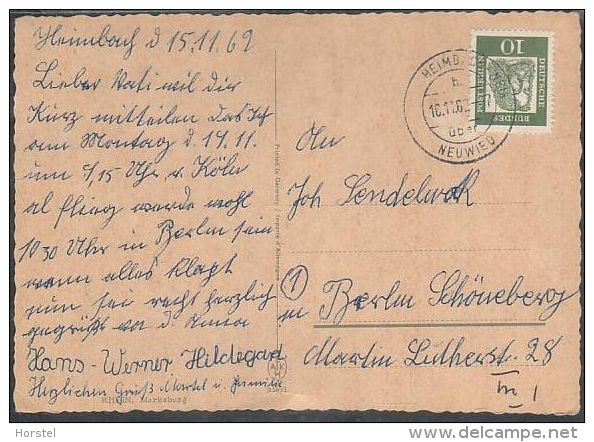 Heimbach d 15.11.62
Lieber Vati wil dir
Kurz mitteilen das Ich
am Montag d 19.11.
um 9,15 Uhr v. Köln
al flieg werde wohl
10 30 Uhr in Berlin sein
wenn alles klapt
nun sei recht herzlich
gegrüßt von d. Anna
Hans-Werner Hildegard
Herzlichen Gruß Martel u Familie
RHEIN, Marksburg
Printed in Germany
HEIMB
b.
16.11.62
über
NEUWIED
10
DEUTSCHE
BUNDES
POST
An
Joh Sendelwak
1
in Berlin Schöneberg
Martin Lutherst. 28
III I
Horstel
delcampe.net